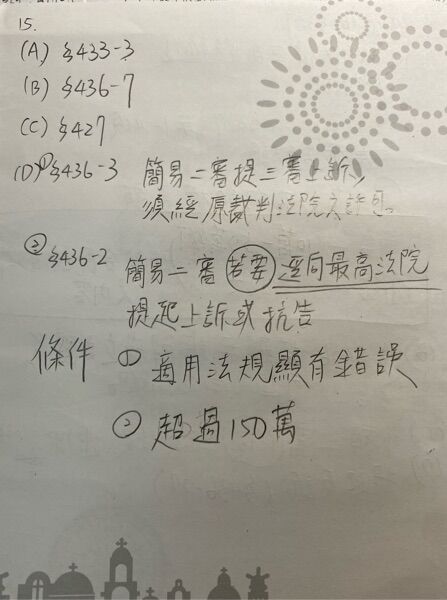 15.
(A) §433-3
(B) §436-7
(C) §427
(D)①§436-3 簡易二審提三審上訴，
須經原裁判法院之許可。
②§436-2 簡易二審若要逕向最高法院
提起上訴或抗告
條件 ① 適用法規顯有錯誤
② 超過150萬